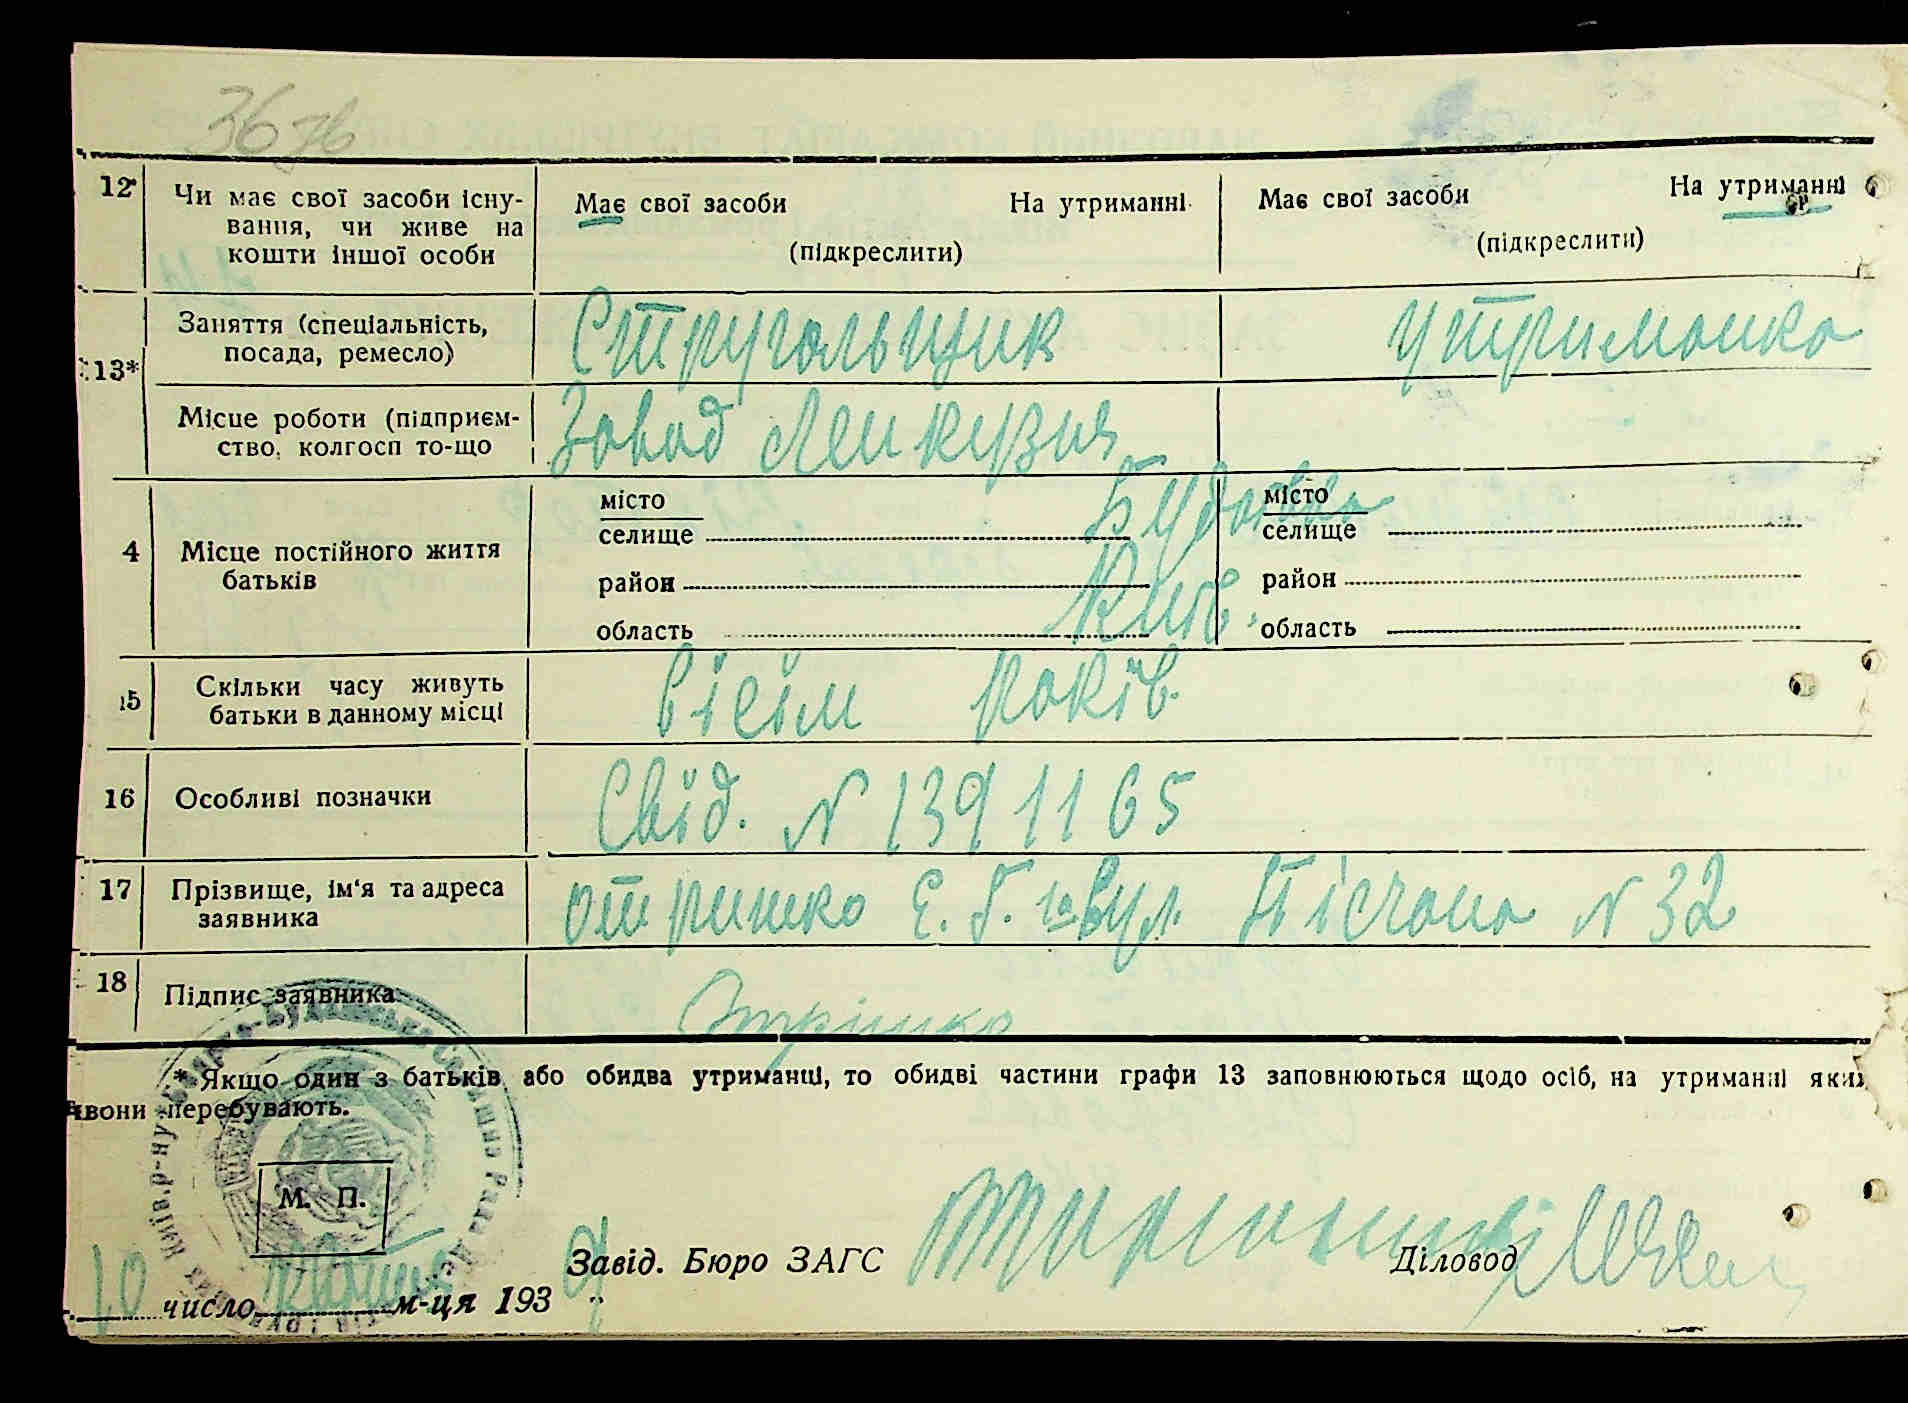 36
12 Чи має свої засоби існу- Має свої засоби На утриманні Має свої засоби На утриманні
вання, чи живе на (підкреслити) (підкреслити)
кошти іншої особи
13* Заняття (спеціальність, Стругальщик утриманка
посада, ремесло)
Місце роботи (підприєм- Завод Ленкузня
ство, колгосп то-що
4 Місце постійного життя місто місто
батьків селище Будаївка селище
район район
область Київ. область
15 Скільки часу живуть вісім років
батьки в данному місці
16 Особливі позначки Свід. N 1391165
17 Прізвище, ім'я та адреса отришко Є. вул. Пісчана N 32
заявника
18 Підпис заявника Отрішко
* Якщо один з батьків або обидва утриманці, то обидві частини графи 13 заповнюються щодо осіб, на утриманні яких
вони перебувають.
М. П.
Завід. Бюро ЗАГС Діловод
10 число м-ця 1939